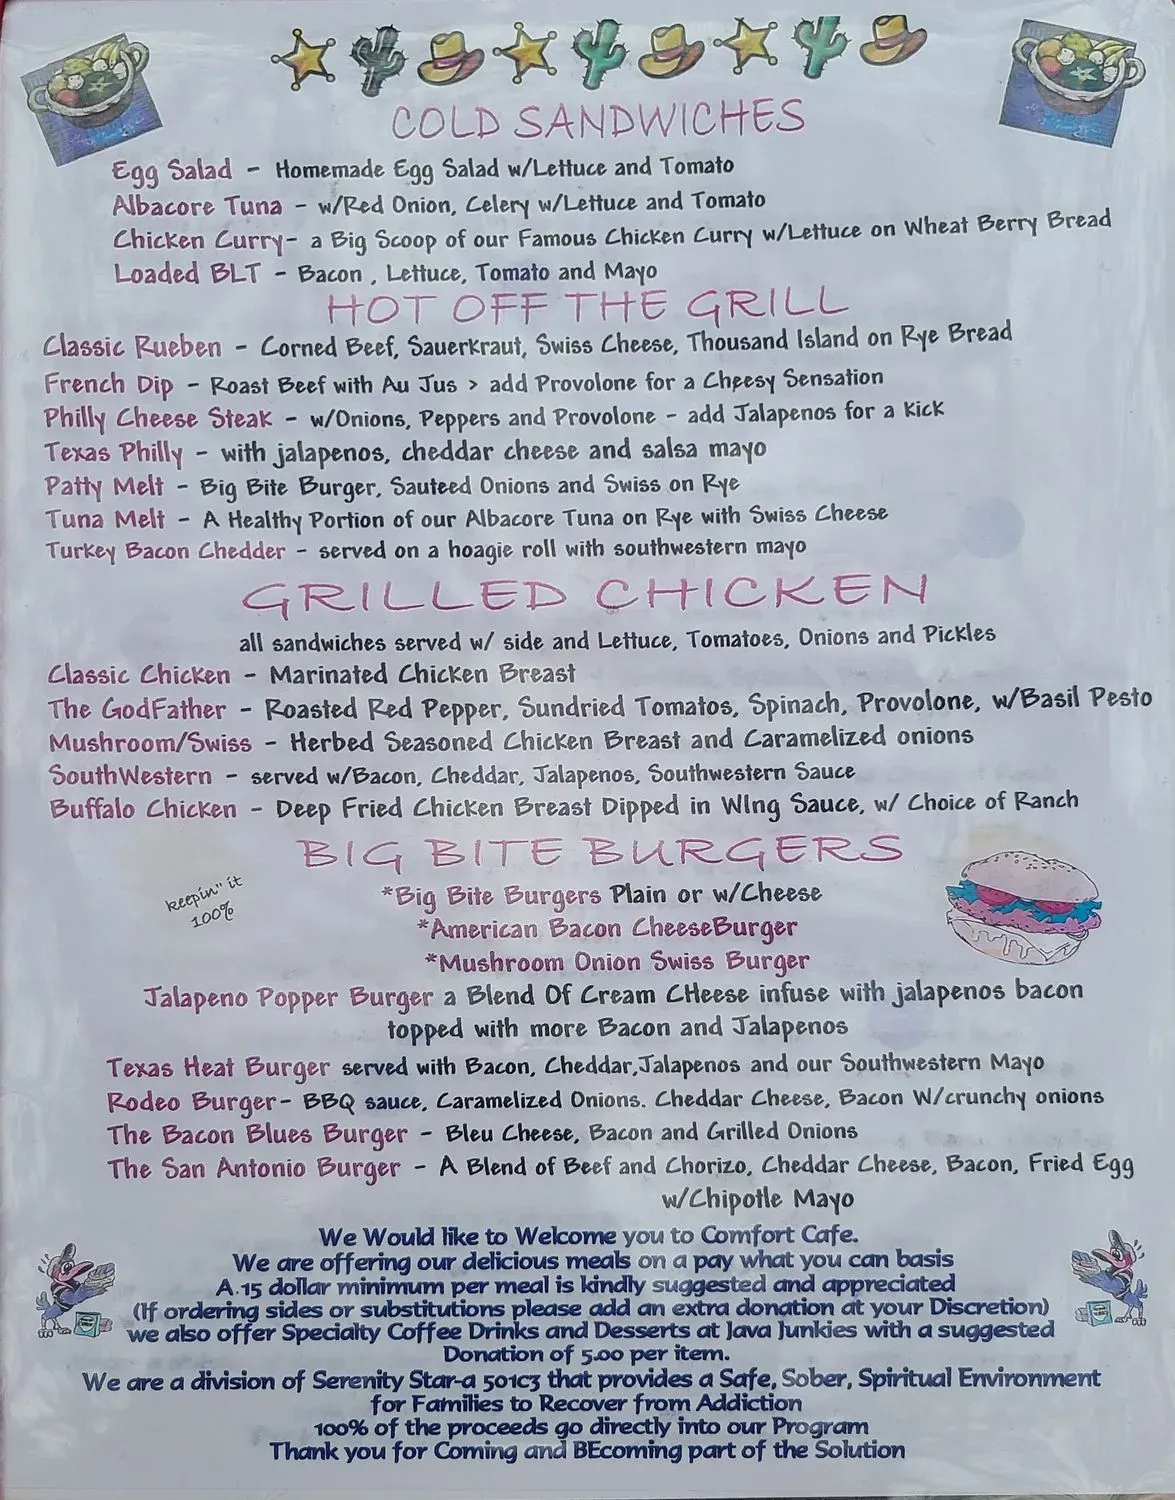 COLD SANDWICHES
Egg Salad - Homemade Egg Salad w/Lettuce and Tomato
Albacore Tuna - w/Red Onion, Celery w/Lettuce and Tomato
Chicken Curry- a Big Scoop of our Famous Chicken Curry w/Lettuce on Wheat Berry Bread
Loaded BLT - Bacon , Lettuce, Tomato and Mayo
HOT OFF THE GRILL
Classic Rueben - Corned Beef, Sauerkraut, Swiss Cheese, Thousand Island on Rye Bread
French Dip - Roast Beef with Au Jus > add Provolone for a Cheesy Sensation
Philly Cheese Steak - w/Onions, Peppers and Provolone - add Jalapenos for a kick
Texas Philly - with jalapenos, cheddar cheese and salsa mayo
Patty Melt - Big Bite Burger, Sauteed Onions and Swiss on Rye
Tuna Melt - A Healthy Portion of our Albacore Tuna on Rye with Swiss Cheese
Turkey Bacon Chedder - served on a hoagie roll with southwestern mayo
GRILLED CHICKEN
all sandwiches served w/ side and Lettuce, Tomatoes, Onions and Pickles
Classic Chicken - Marinated Chicken Breast
The GodFather - Roasted Red Pepper, Sundried Tomatos, Spinach, Provolone, w/Basil Pesto
Mushroom/Swiss - Herbed Seasoned Chicken Breast and Caramelized onions
SouthWestern - served w/Bacon, Cheddar, Jalapenos, Southwestern Sauce
Buffalo Chicken - Deep Fried Chicken Breast Dipped in WIng Sauce, w/ Choice of Ranch
BIG BITE BURGERS
keepin" it
100%
*Big Bite Burgers Plain or w/Cheese
*American Bacon CheeseBurger
*Mushroom Onion Swiss Burger
Jalapeno Popper Burger a Blend Of Cream CHeese infuse with jalapenos bacon
topped with more Bacon and Jalapenos
Texas Heat Burger served with Bacon, Cheddar,Jalapenos and our Southwestern Mayo
Rodeo Burger- BBQ sauce, Caramelized Onions. Cheddar Cheese, Bacon W/crunchy onions
The Bacon Blues Burger - Bleu Cheese, Bacon and Grilled Onions
The San Antonio Burger - A Blend of Beef and Chorizo, Cheddar Cheese, Bacon, Fried Egg
w/Chipotle Mayo
We Would like to Welcome you to Comfort Cafe.
We are offering our delicious meals on a pay what you can basis
A.15 dollar minimum per meal is kindly suggested and appreciated
(If ordering sides or substitutions please add an extra donation at your Discretion)
we also offer Specialty Coffee Drinks and Desserts at Java Junkies with a suggested
Donation of 5.00 per item.
We are a division of Serenity Star-a 501c3 that provides a Safe, Sober, Spiritual Environment
for Families to Recover from Addiction
100% of the proceeds go directly into our Program
Thank you for Coming and BEcoming part of the Solution